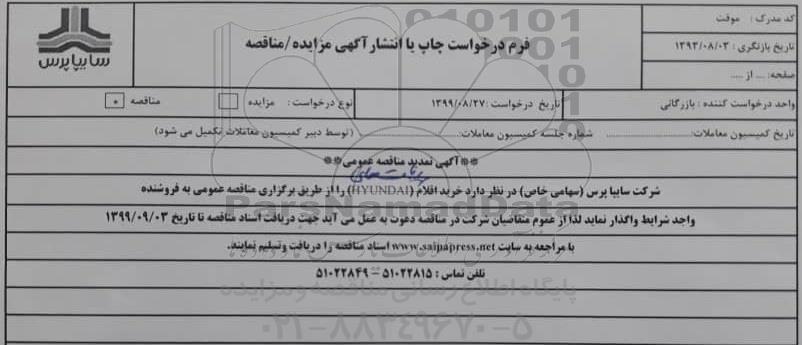 کد مدرک : موقت
تاریخ بازنگری : ۱۳۹۳/۰۸/۰۳
صفحه: .... از .....
فرم درخواست چاپ یا انتشار آگهی مزایده/مناقصه
سایپاپرس
واحد درخواست کننده : بازرگانی
تاریخ درخواست :۱۳۹۹/۰۸/۲۷
نوع درخواست : مزایده
مناقصه *
تاریخ کمیسیون معاملات:........................ شماره جلسه کمیسیون معاملات:........................ (توسط دبیر کمیسیون معاملات تکمیل می شود)
**آگهی تمدید مناقصه عمومی**
شرکت سایپا پرس (سهامی خاص) در نظر دارد خرید اقلام (HYUNDAI) را از طریق برگزاری مناقصه عمومی به فروشنده
واجد شرایط واگذار نماید لذا از عموم متقاضیان شرکت در مناقصه دعوت به عمل می آید جهت دریافت اسناد مناقصه تا تاریخ ۱۳۹۹/۰۹/۰۳
با مراجعه به سایت www.saipapress.net اسناد مناقصه را دریافت وتسلیم نمایند.
تلفن تماس : ۵۱۰۲۲۸۱۵ – ۵۱۰۲۲۸۴۹
ParsNamadData
پایگاه اطلاع رسانی مناقصه و مزایده
۰۲۱-۸۸۳۴۹۶۷۰-۵